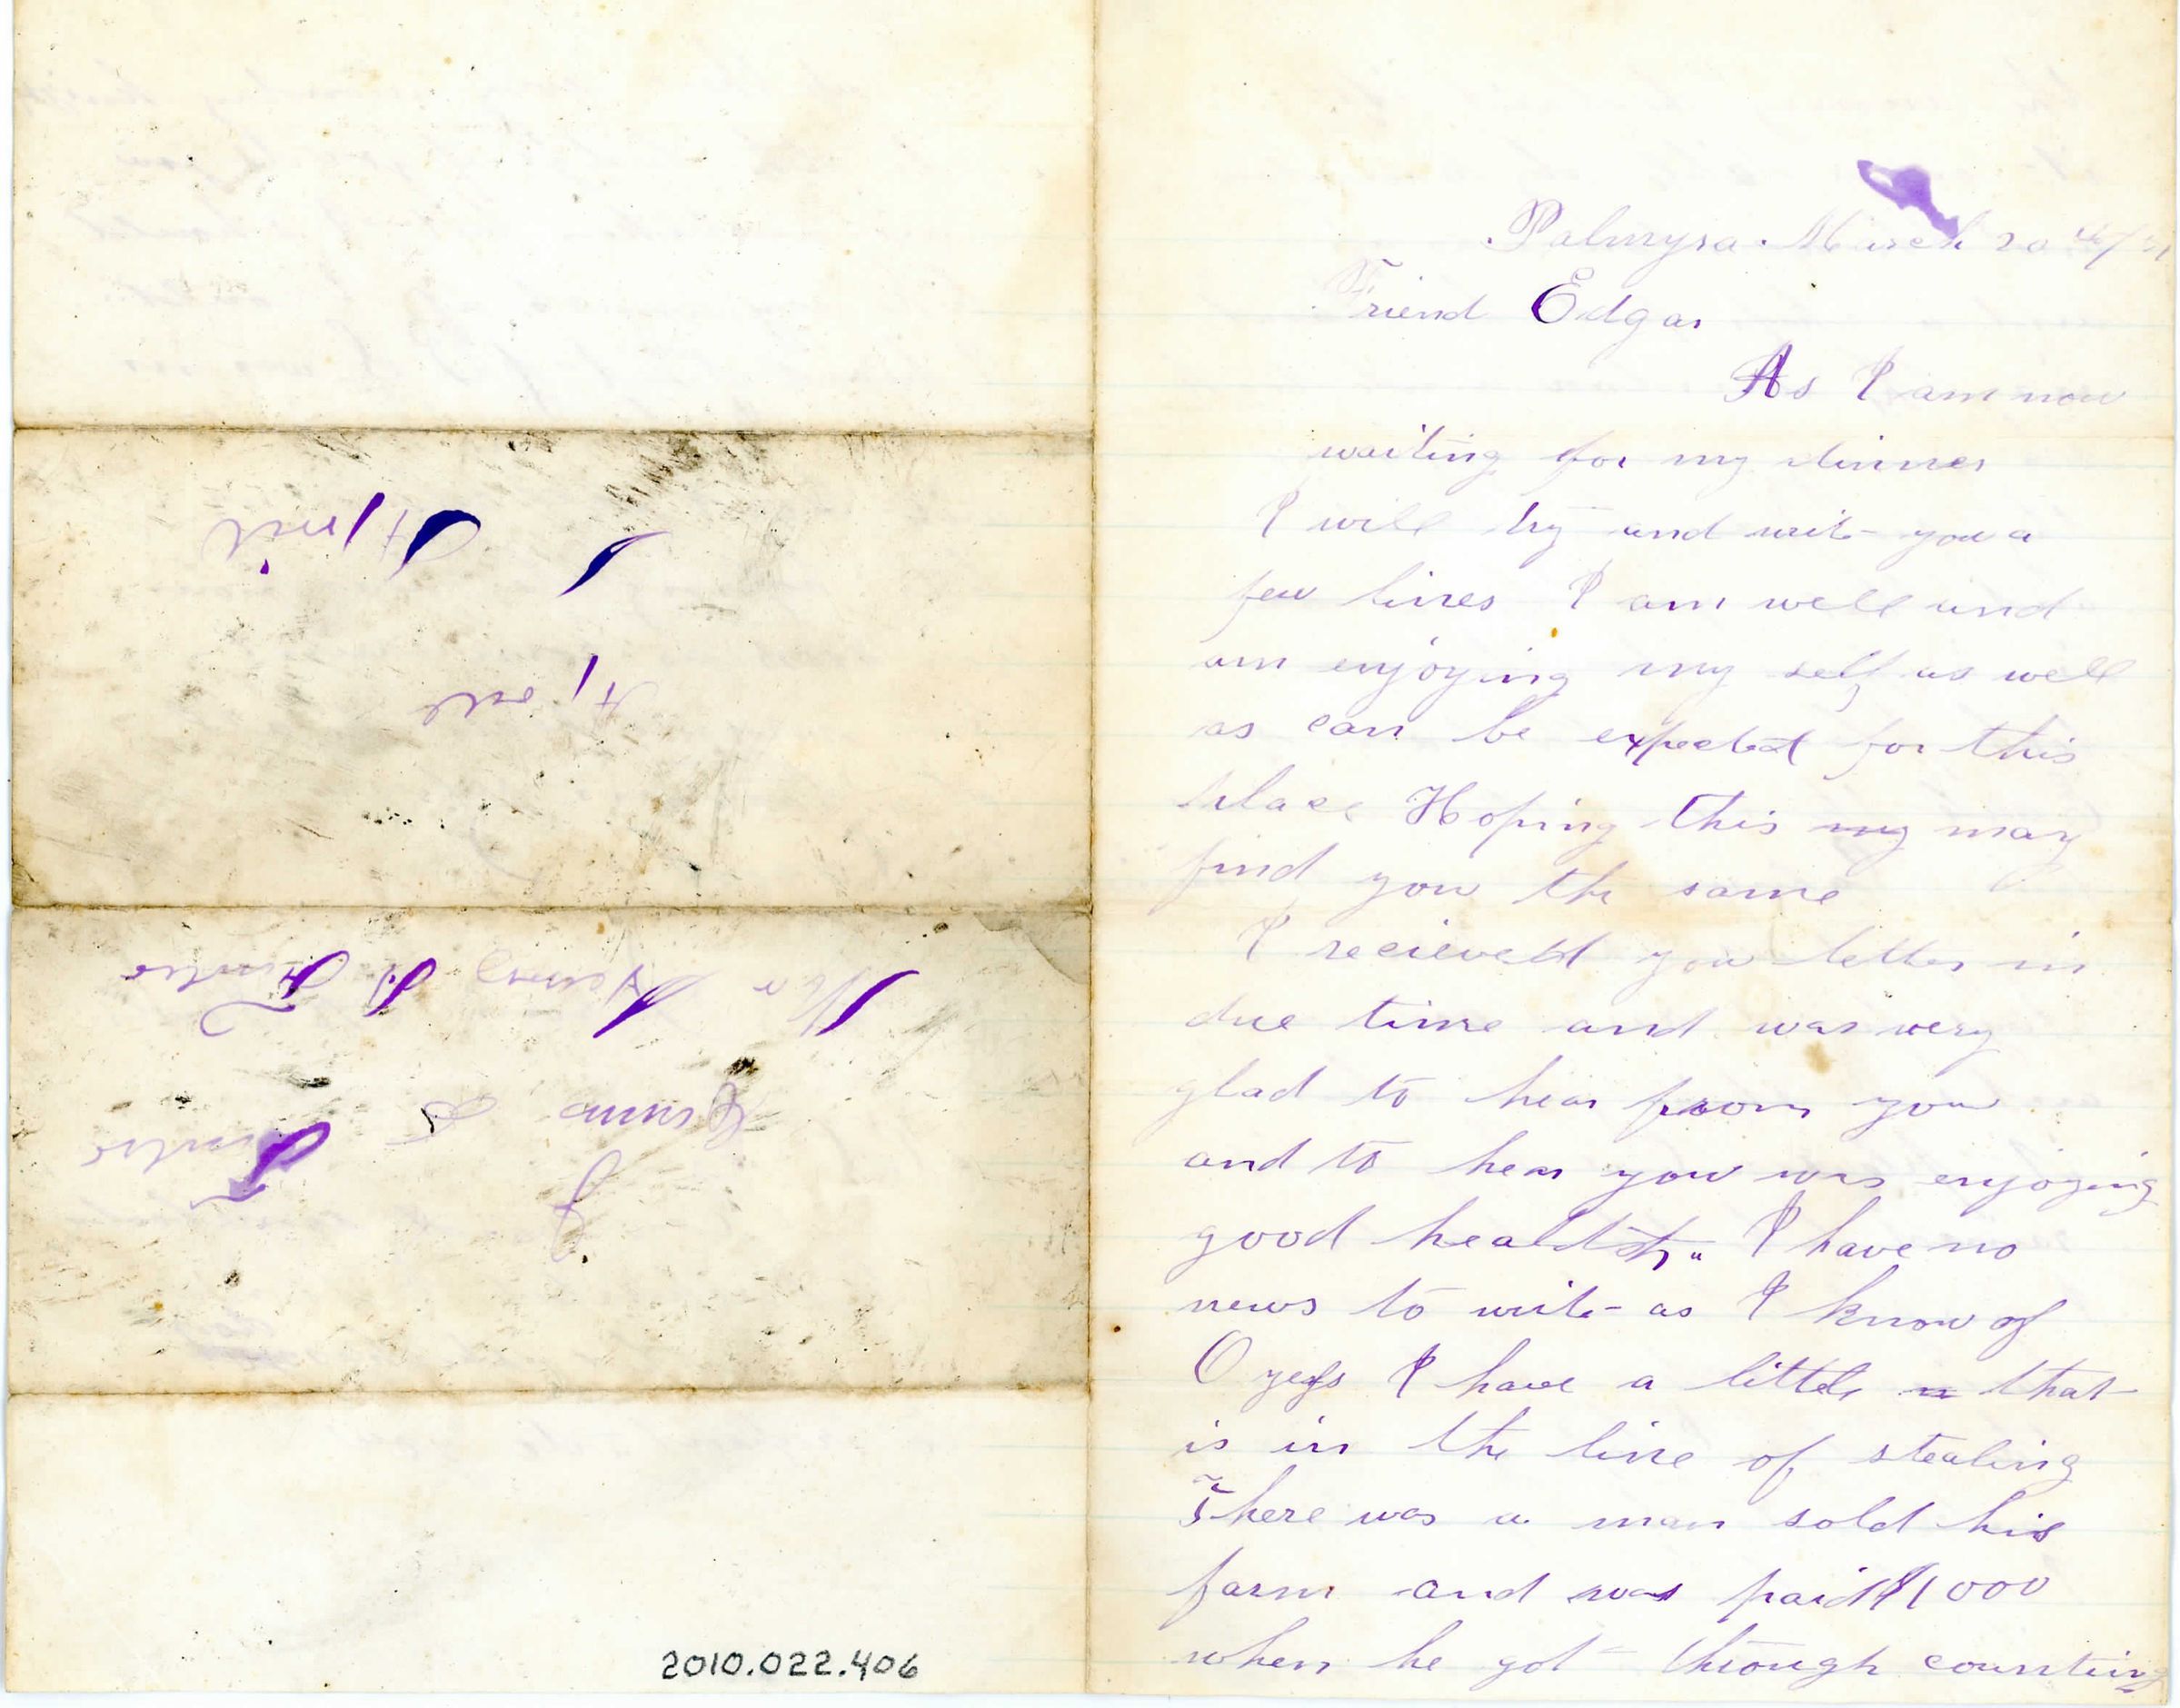 Palmyra March 20th/
Friend Edgar
As I am now
waiting for my dinner
I will try and write you a
few lines I am well and
am enjoying my self as well
as can be expected for this
place Hoping this my may
find you the same
I recieveed you letter in
due time and was very
glad to hear from you
and to hear you was enjoying
good health. I have no
news to write as I know of
O yess I have a little n that
is in the line of stealing
There was a man sold his
farm and was paid $1000
when he got through counting
April
April
Emma
2010.022.406